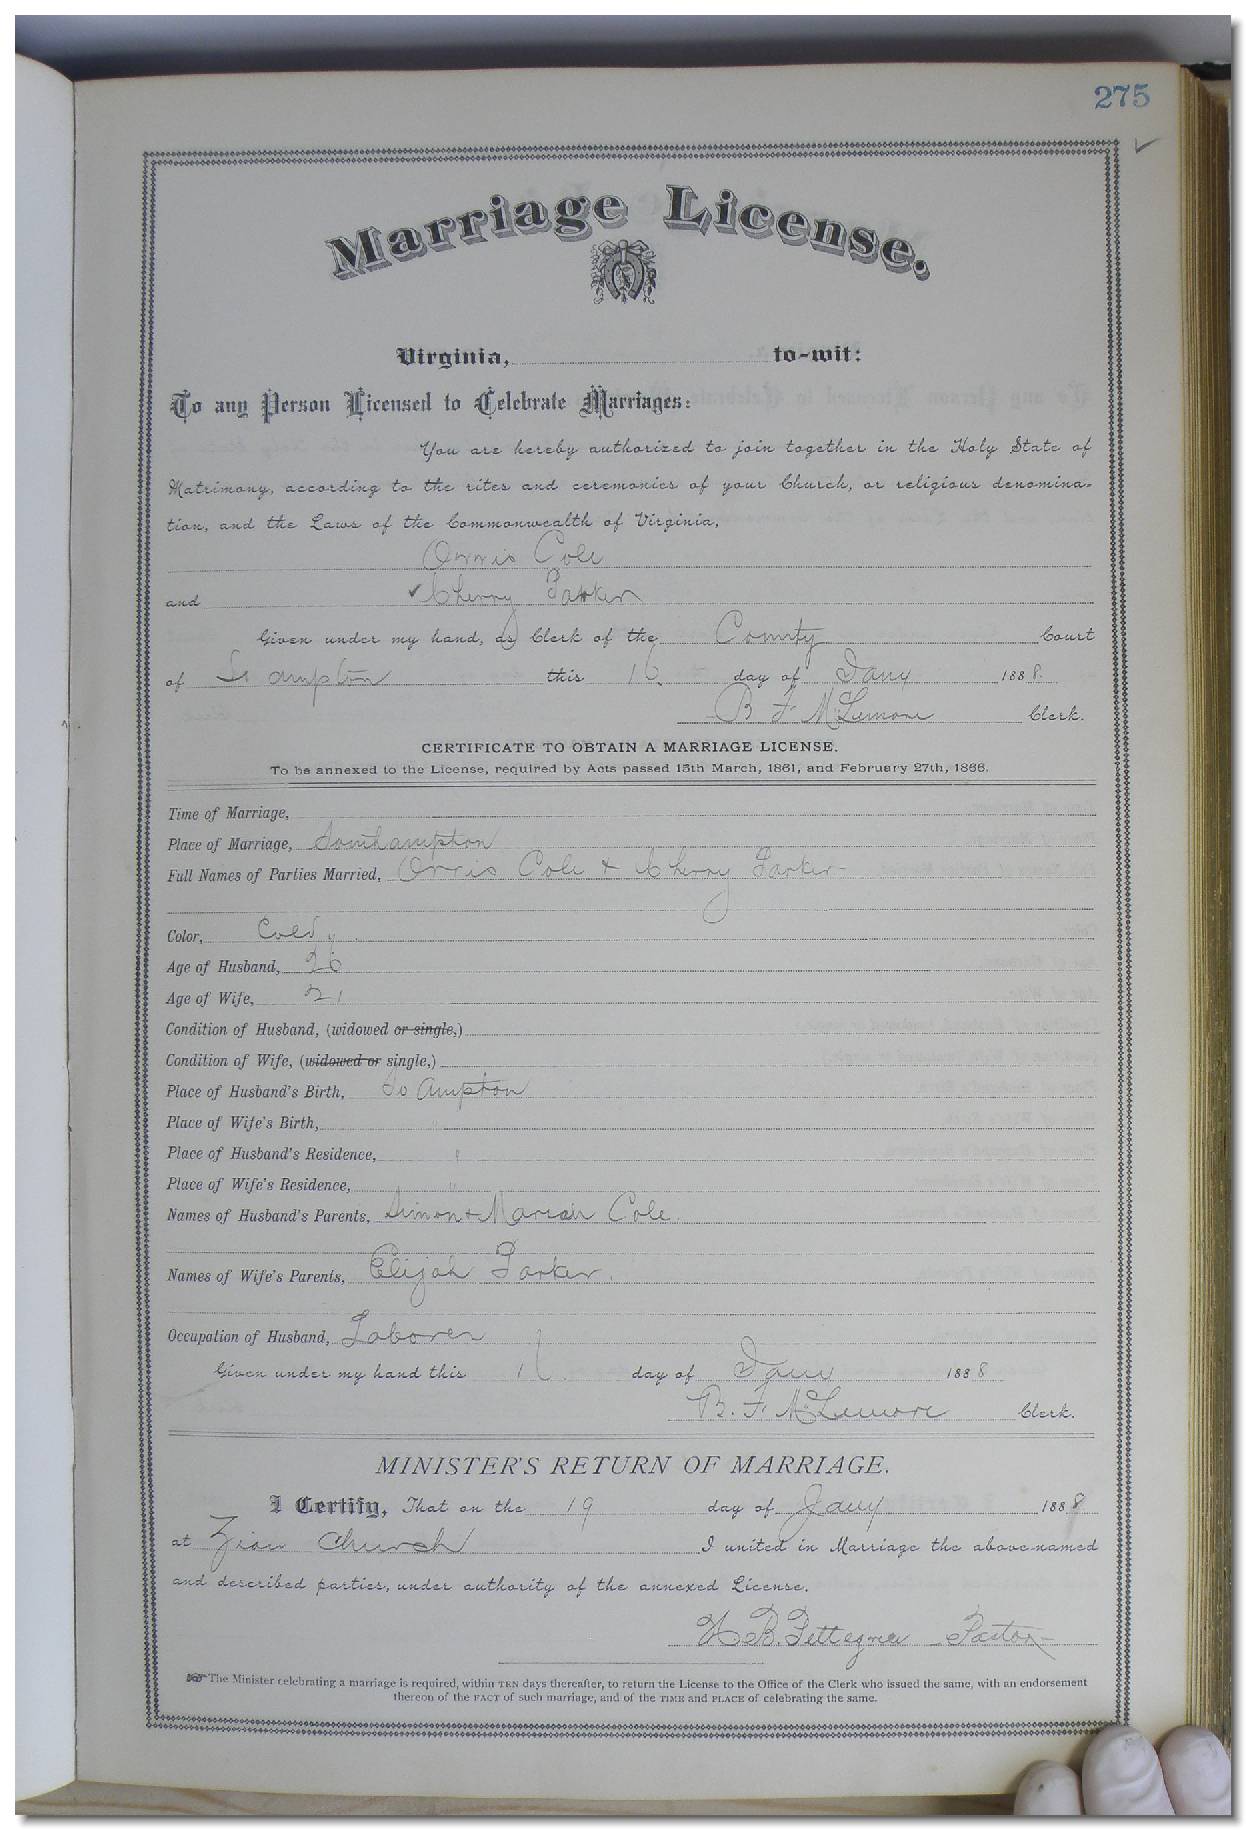 275
Marriage License.
Virginia, to-wit:
To any Person Licensed to Celebrate Marriages:
You are hereby authorized to join together in the Holy State of
Matrimony, according to the rites and ceremonies of your Church, or religious denomina-
tion, and the Laws of the Commonwealth of Virginia,
Orris Cole
and Cherry Parker
Given under my hand, as Clerk of the County Court
of So ampton this 16 day of Jany 1888.
B F McLemore Clerk.
CERTIFICATE TO OBTAIN A MARRIAGE LICENSE.
To be annexed to the License, required by Acts passed 15th March, 1861, and February 27th, 1866.
Time of Marriage,
Place of Marriage, Southampton
Full Names of Parties Married, Orris Cole & Cherry Parker
Color, Cold
Age of Husband, 26
Age of Wife, 21
Condition of Husband, (widowed or single,)
Condition of Wife, (widowed or single,)
Place of Husband's Birth, So Ampton
Place of Wife's Birth,
Place of Husband's Residence, "
Place of Wife's Residence, "
Names of Husband's Parents, Simon & Mariah Cole
Names of Wife's Parents, Elijah Parker.
Occupation of Husband, Laborer
Given under my hand this 16 day of Jany 1888
B. F. McLemore Clerk.
MINISTER'S RETURN OF MARRIAGE.
I Certify, That on the 19 day of Jany 1888
at Zion Church I united in Marriage the above-named
and described parties, under authority of the annexed License.
H B. Pettegrew Pastor
The Minister celebrating a marriage is required, within TEN days thereafter, to return the License to the Office of the Clerk who issued the same, with an endorsement
thereon of the FACT of such marriage, and of the TIME and PLACE of celebrating the same.